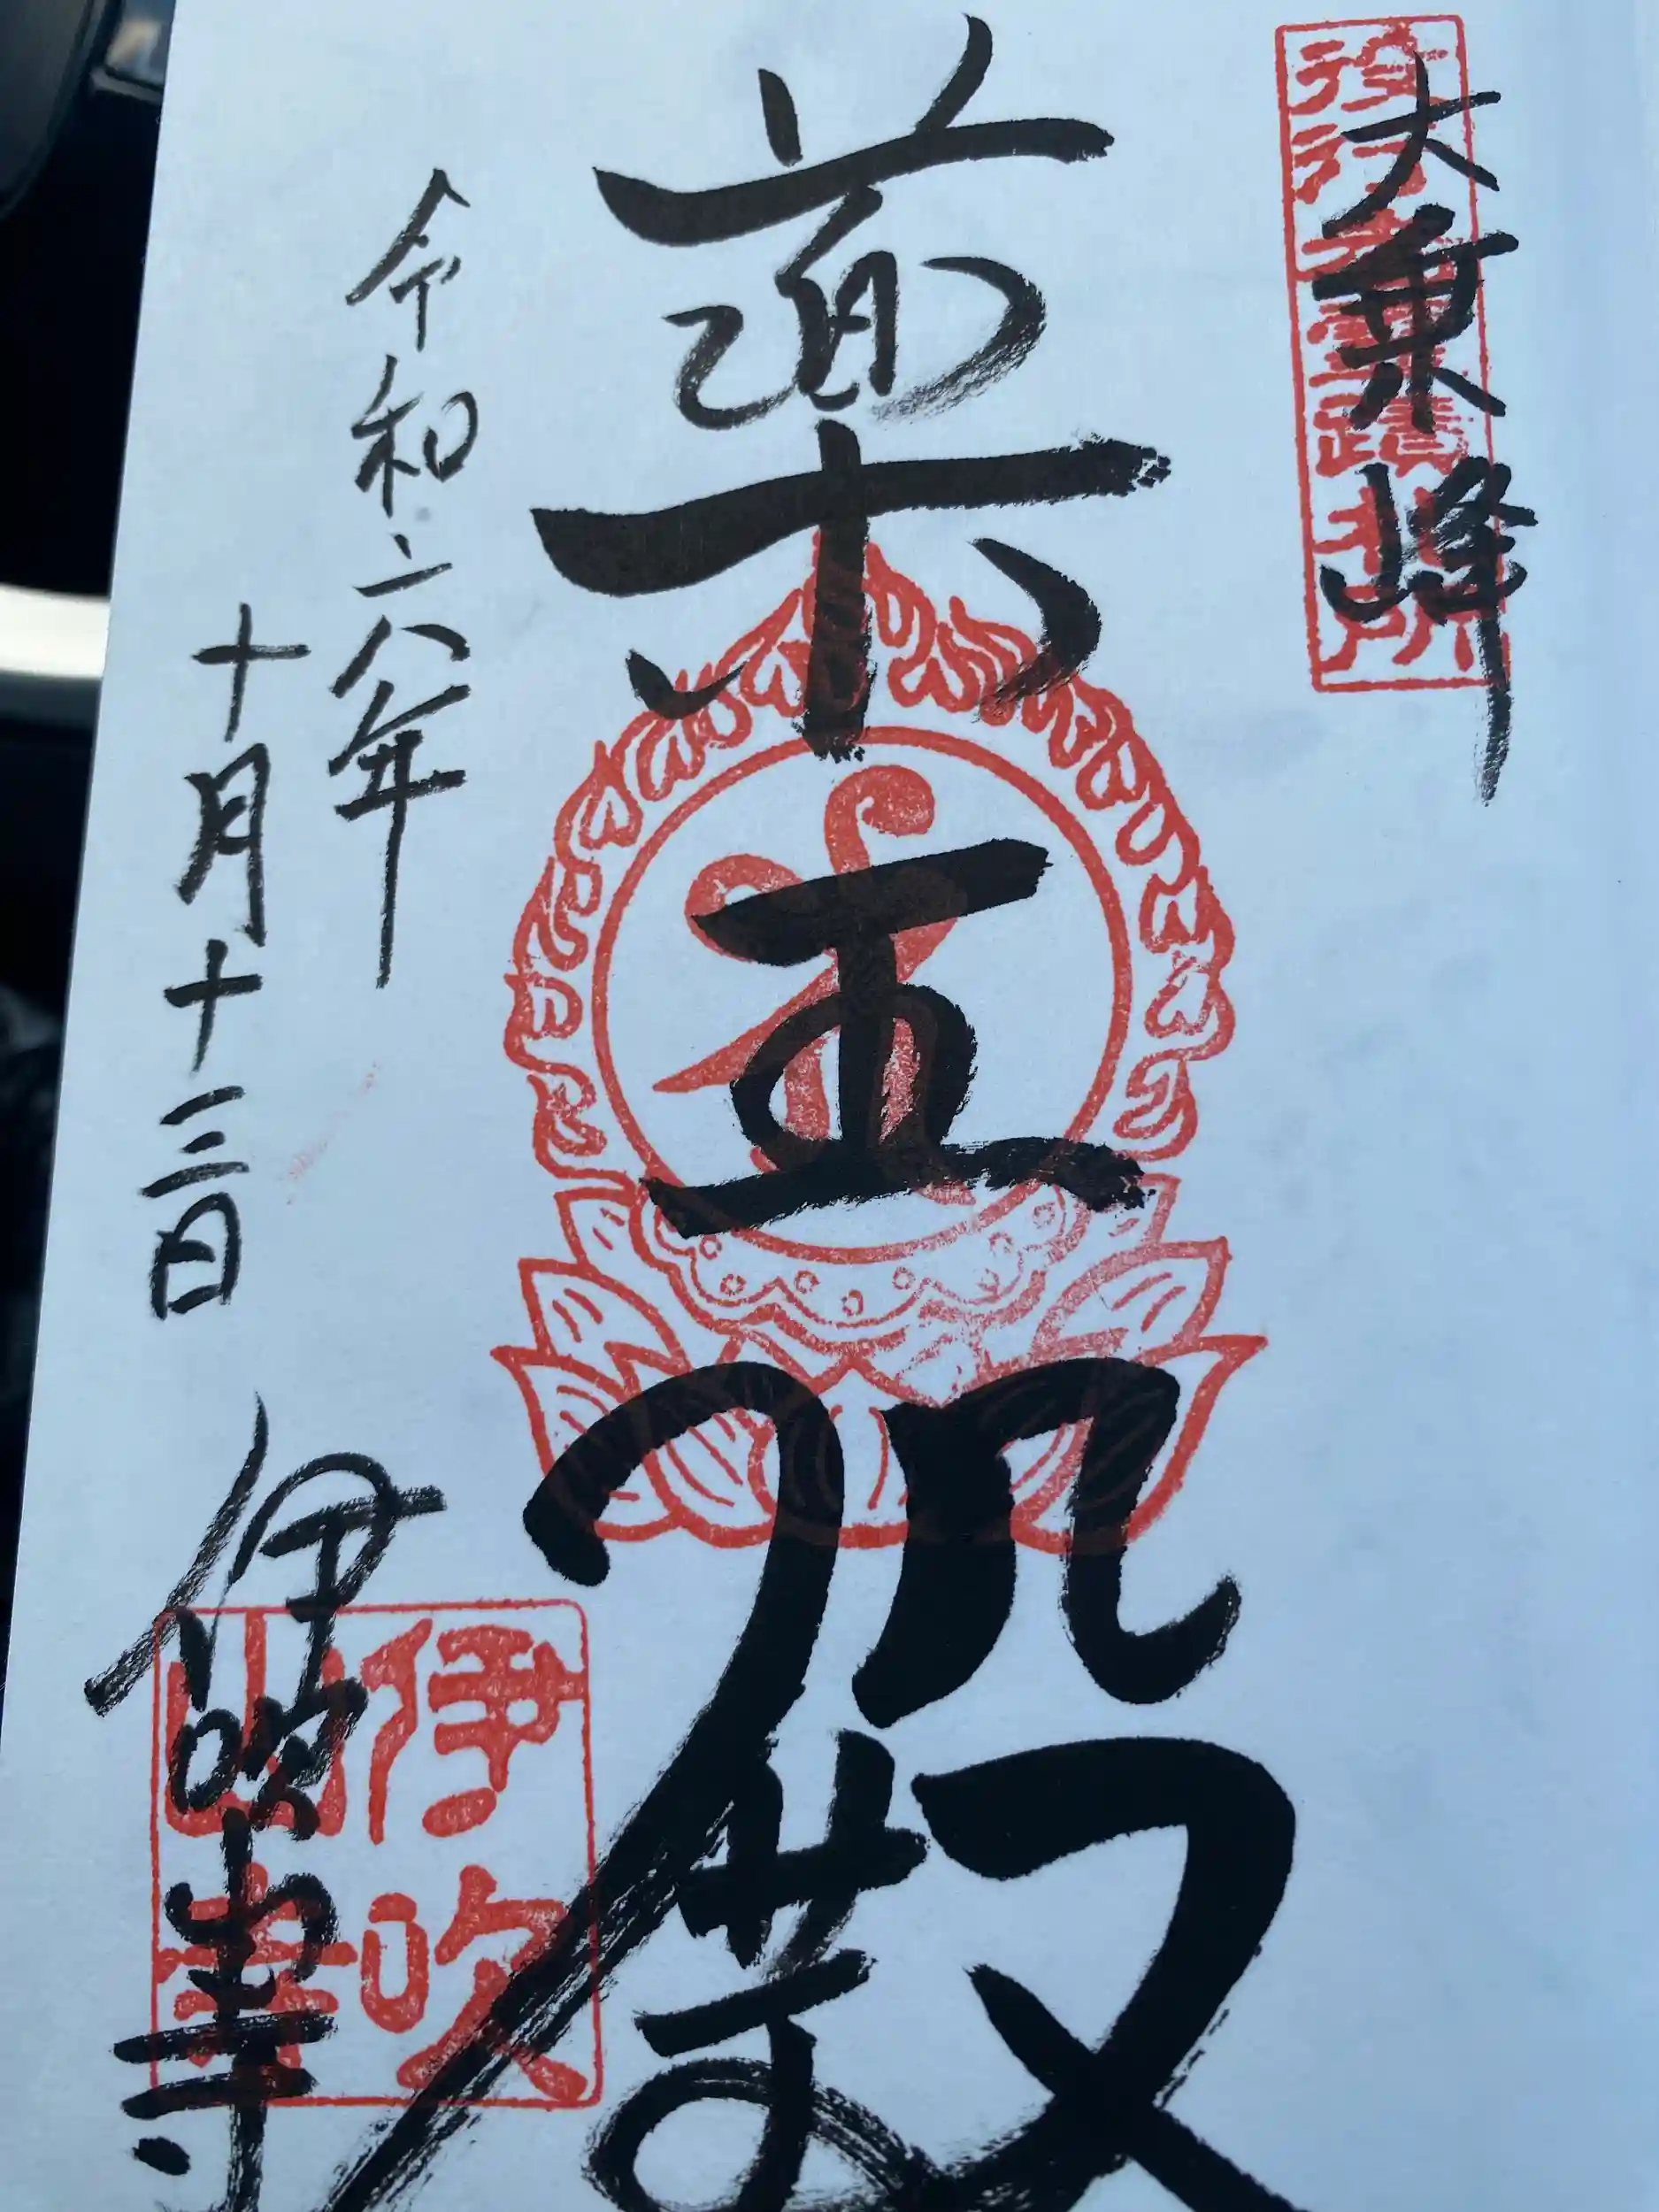 大乗峰
役行者霊蹟札所
薬王殿
令和六年
十月十三日
伊吹山寺
伊吹山寺